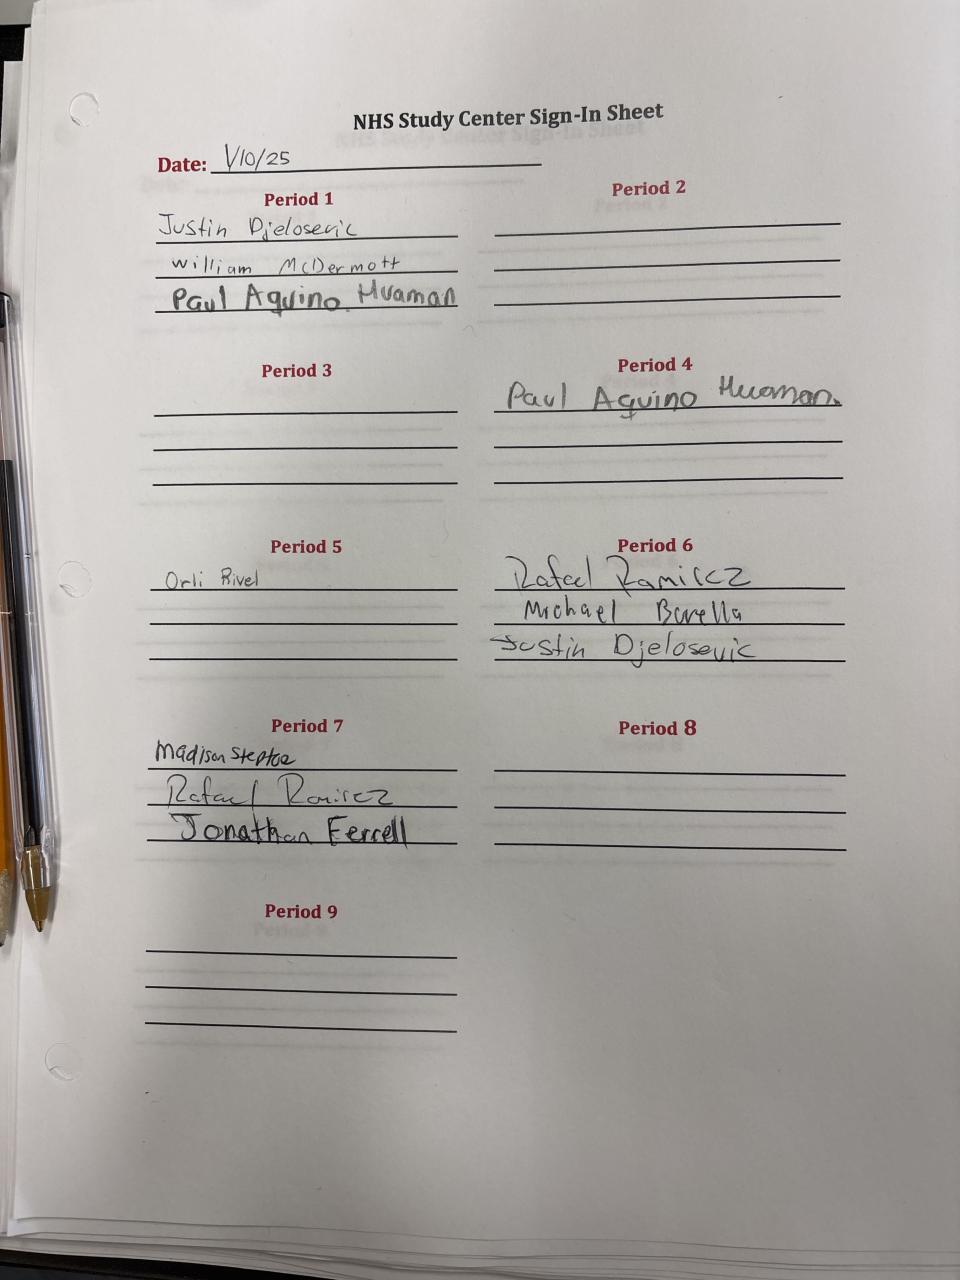 NHS Study Center Sign-In Sheet
Date: 1/10/25
Period 1
Justin Djelosevic
William McDermott
Paul Aquino Huaman
Period 2
Period 3
Period 4
Paul Aquino Huaman.
Period 5
Orli Rivel
Period 6
Rafael Ramirez
Michael Borella
Justin Djelosevic
Period 7
Madison Steptoe
Rafael Ramirez
Jonathan Ferrell
Period 8
Period 9